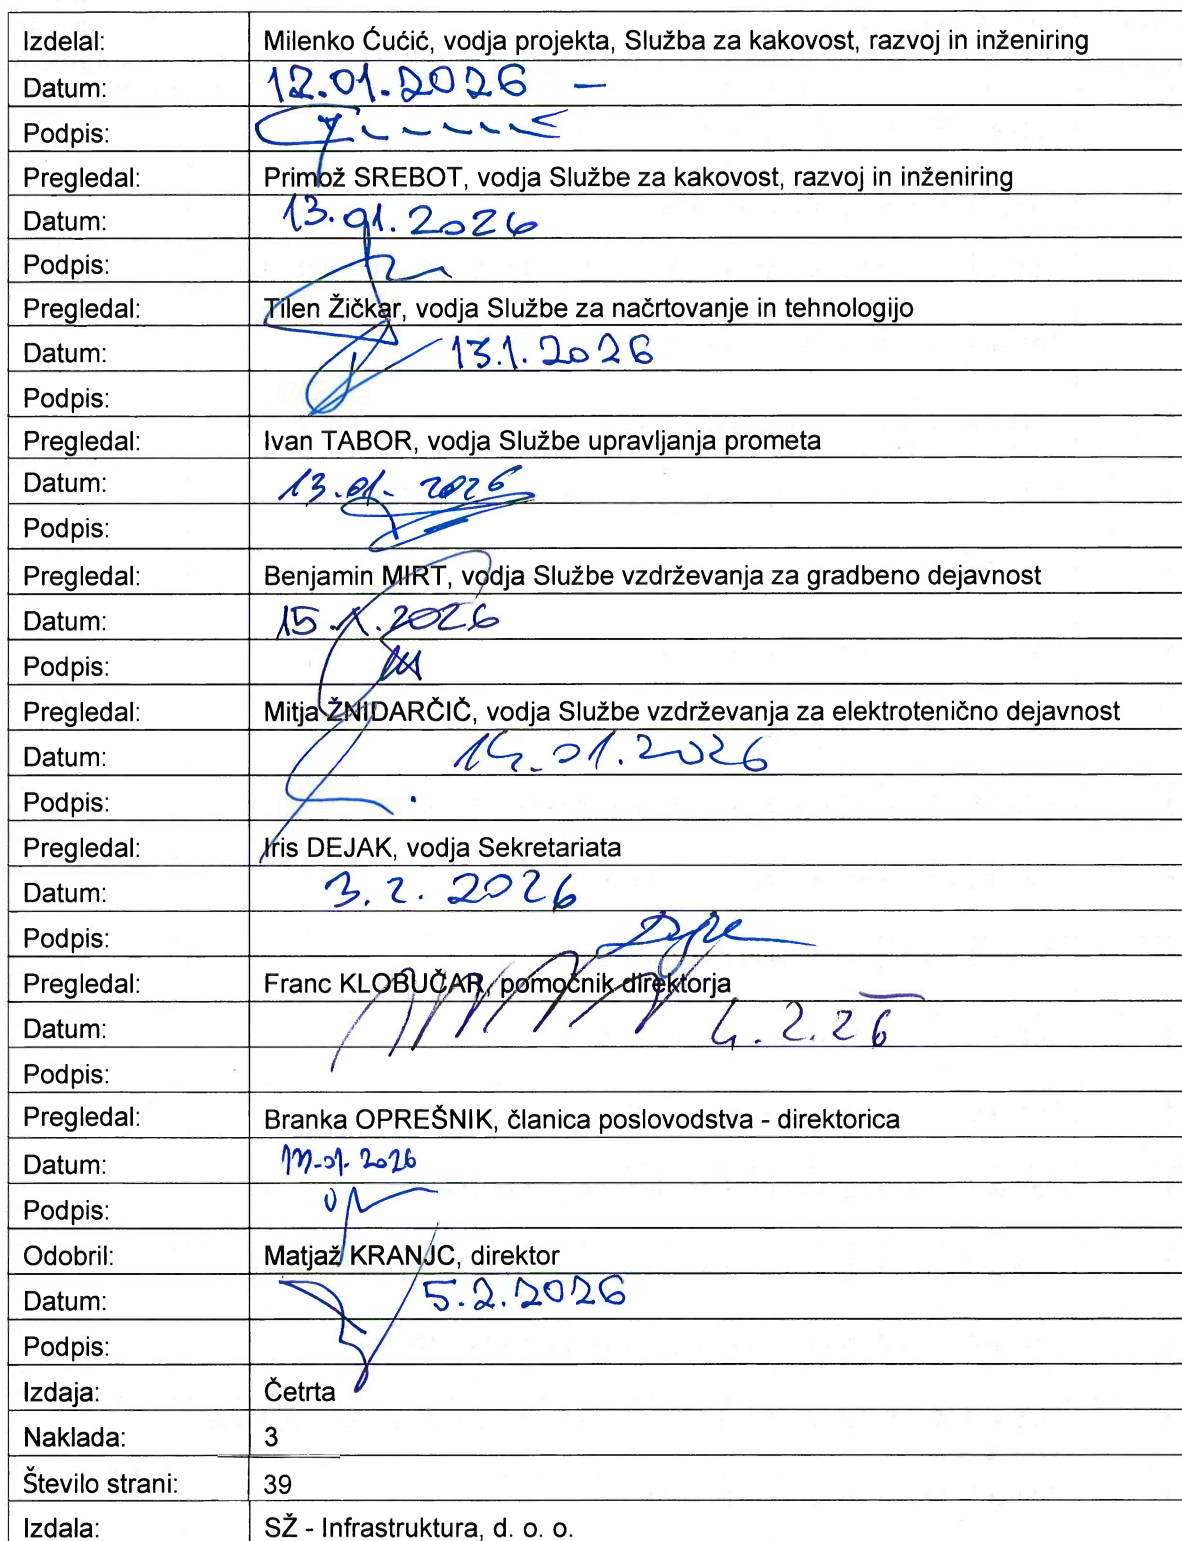 Izdelal: Milenko Ćućić, vodja projekta, Služba za kakovost, razvoj in inženiring
Datum: 12.01.2026 –
Podpis:
Pregledal: Primož SREBOT, vodja Službe za kakovost, razvoj in inženiring
Datum: 13.01.2026
Podpis:
Pregledal: Tilen Žičkar, vodja Službe za načrtovanje in tehnologijo
Datum: 13.1.2026
Podpis:
Pregledal: Ivan TABOR, vodja Službe upravljanja prometa
Datum: 13.01.2026
Podpis:
Pregledal: Benjamin MIRT, vodja Službe vzdrževanja za gradbeno dejavnost
Datum: 15.1.2026
Podpis:
Pregledal: Mitja ŽNIDARČIČ, vodja Službe vzdrževanja za elektrotenično dejavnost
Datum: 14.01.2026
Podpis:
Pregledal: Iris DEJAK, vodja Sekretariata
Datum: 3. 2. 2026
Podpis:
Pregledal: Franc KLOBUČAR, pomočnik direktorja
Datum: 4. 2. 26
Podpis:
Pregledal: Branka OPREŠNIK, članica poslovodstva - direktorica
Datum:
Podpis:
Odobril: Matjaž KRANJC, direktor
Datum: 5.2.2026
Podpis:
Izdaja: Četrta
Naklada: 3
Število strani: 39
Izdala: SŽ - Infrastruktura, d. o. o.